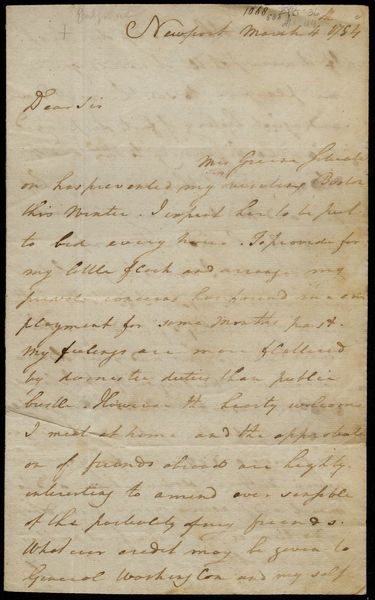 Newport March 4th 1784
Dear Sir
Mrs Greene Situati
on has prevented my visiting Boston
this Winter. I expect her to be put
to bed every hour. To provide for
my little flock and arrange my
private concerns has found me em
ployment for some Months past.
My feelings are more flattered
by domestic duties than public
bustle. However the hearty welcome
I meet at home and the approbati
on of friends abroad are highly
interesting to a mind ever sensible
of the partiality of my friends.
What ever credit may be given to
General Washington and my self